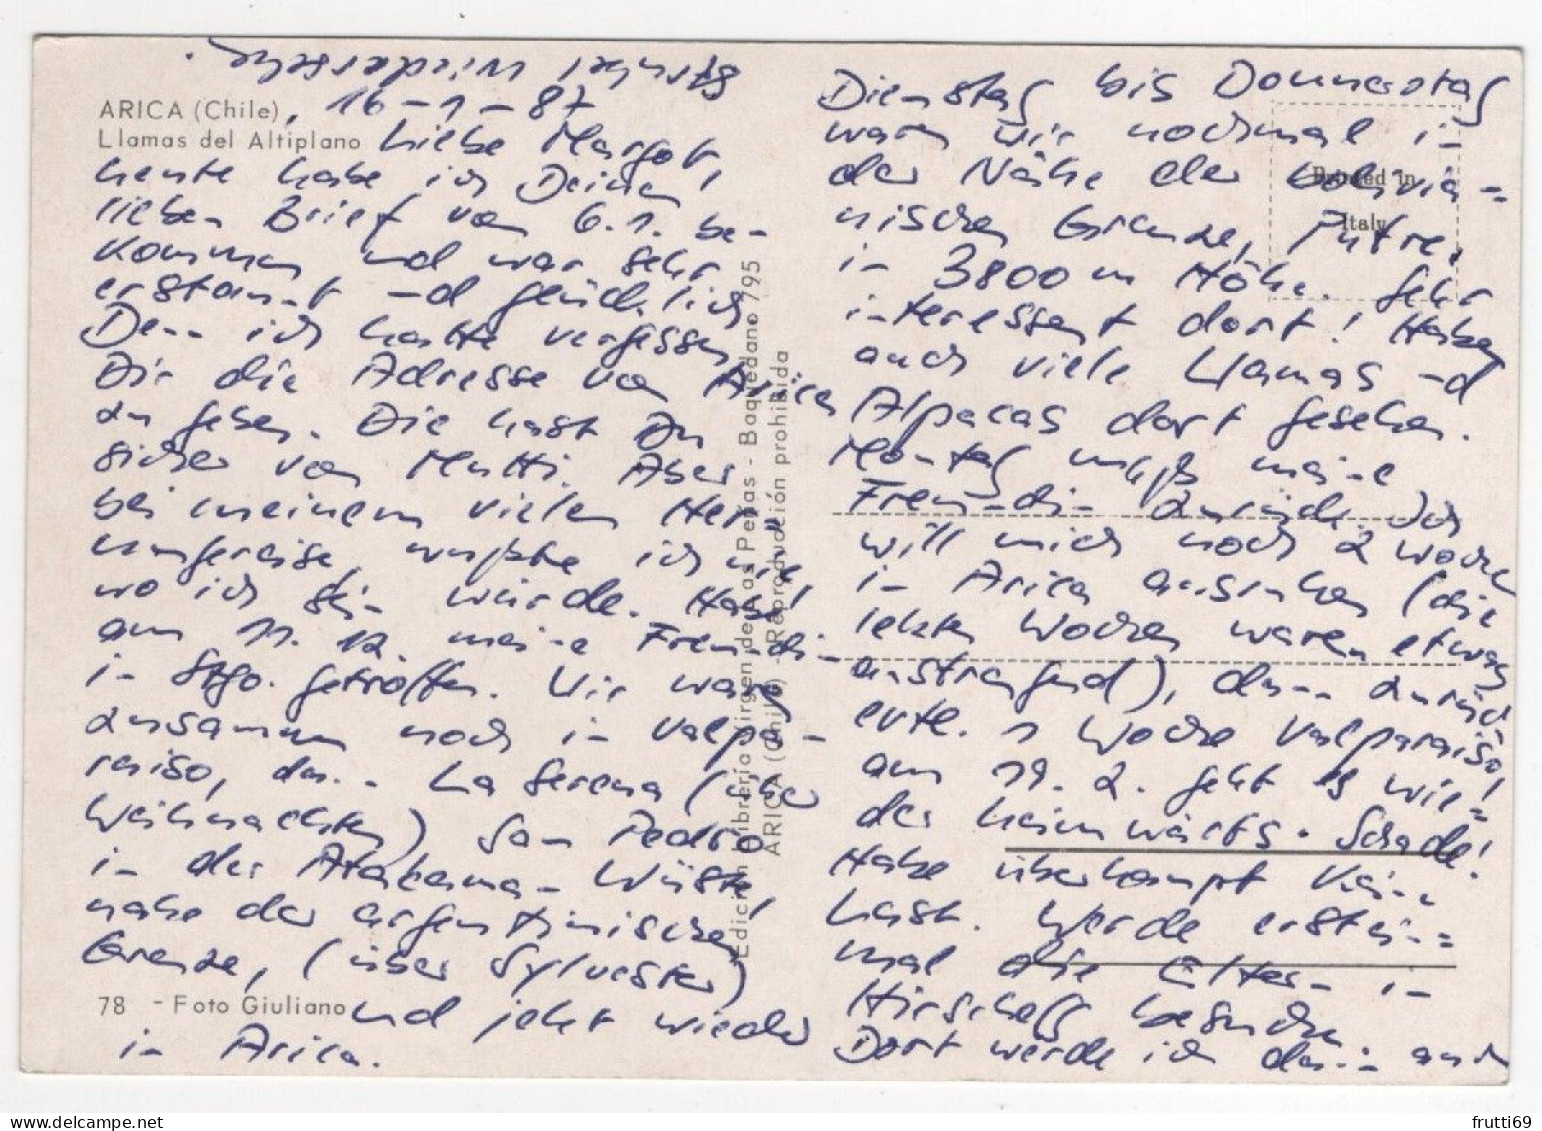 ARICA (Chile), 16-1-87
Llamas del Altiplano
Liebe Margot,
heute habe ich Deinen
lieben Brief vom 6.1. be-
kommen und war sehr
erstaunt und glücklich.
Denn ich hatte vergessen,
Dir die Adresse von Arica
zu geben. Die hast Du
sicher von Mutti. Aber
bei meinem vielen Her-
umgereise, wußte ich nie,
wo ich sein würde. Habe
am 11. 12. meine Freundin
in Stgo. getroffen. Wir waren
zusammen noch in Valpa-
raiso, dann La Serena (über
Weihnachten) San Pedro
in der Atacama-Wüste,
nahe der argentinischen
Grenze, (über Sylvester)
und jetzt wieder
in Arica.
78 - Foto Giuliano
Edición Librería Virgen de las Peñas - Baquedano 795
ARICA (Chile) - Reproducción prohibida
Dienstag bis Donnerstag
waren wir nochmal in
der Nähe der bolivia=
nischen Grenze, Putre,
in 3800 m Höhe. Sehr
interessant dort! Haben
auch viele Llamas und
Alpacas dort gesehen.
Montag muß meine
Freundin zurück. Ich
will mich noch 2 Wochen
in Arica ausruhen (die
letzten Wochen waren etwas
anstrengend), dann zurück
evtl. 1 Woche Valparaiso!
am 19. 2. geht's wie=
der heimwärts. Schade!
Habe überhaupt keine
Lust. Werde erstein=
mal die Eltern in
Hirschegg besuchen
Dort werde ich dann auch
Struber wiedersehen.
Printed in
Italy
delcampe.net
frutti69